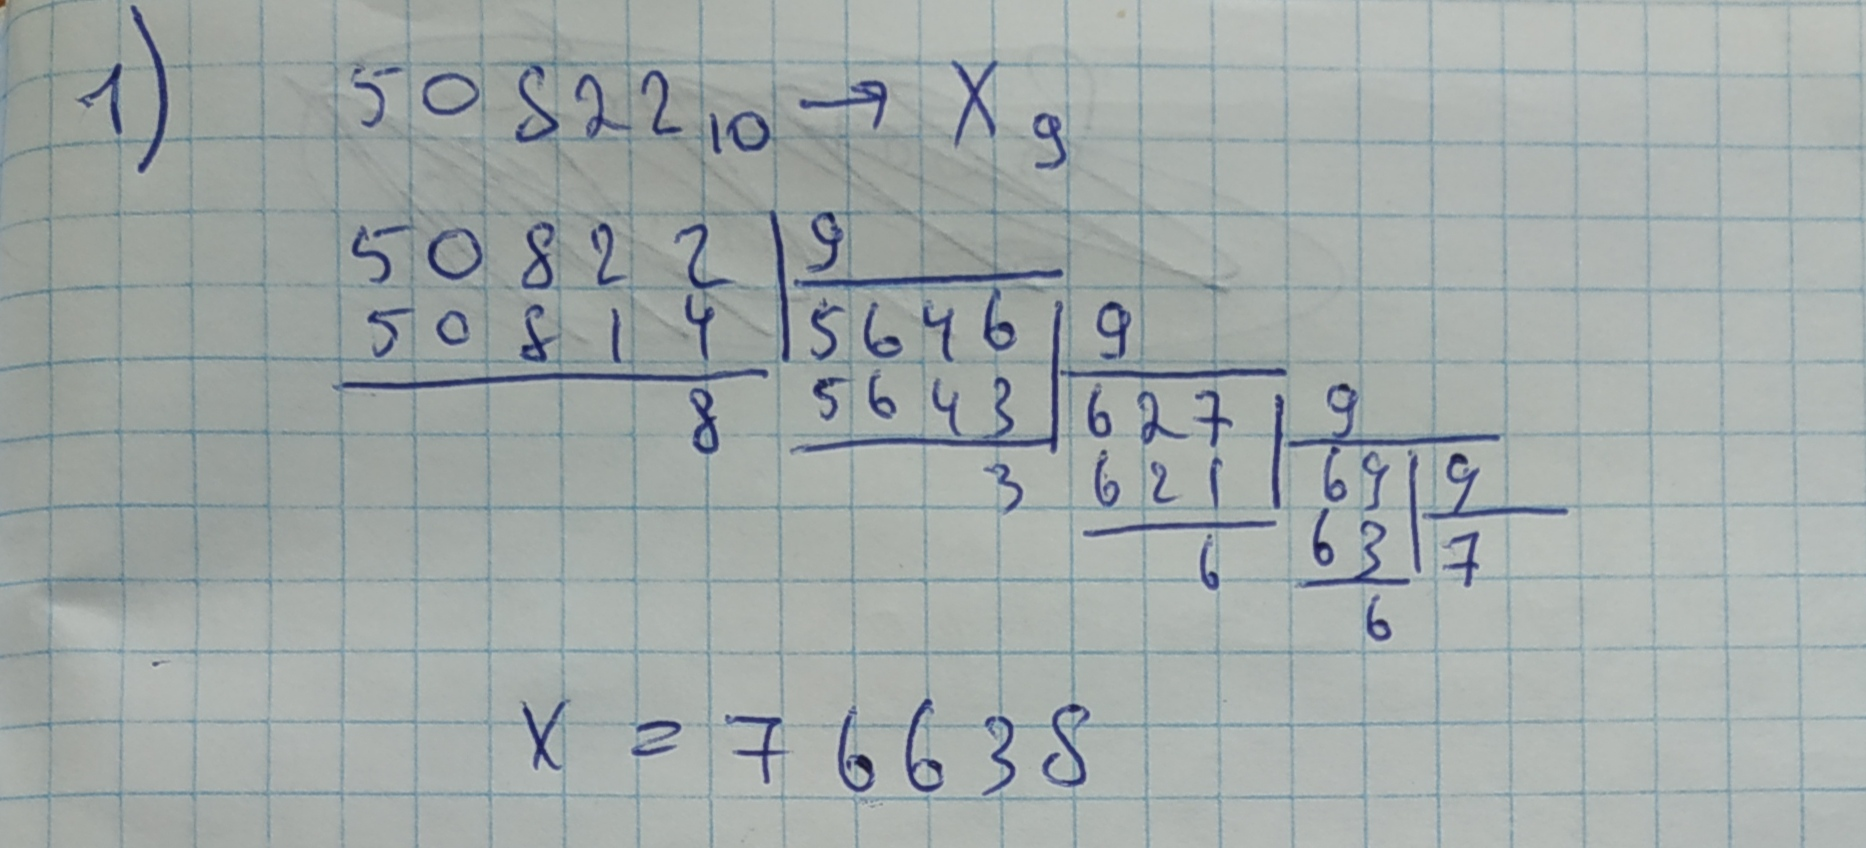 1) 50822₁₀ → X₉
50822 | 9
50814 | 5646 | 9
8 5643 | 627 | 9
3 621 | 69 | 9
6 63 | 7
6
X = 76638